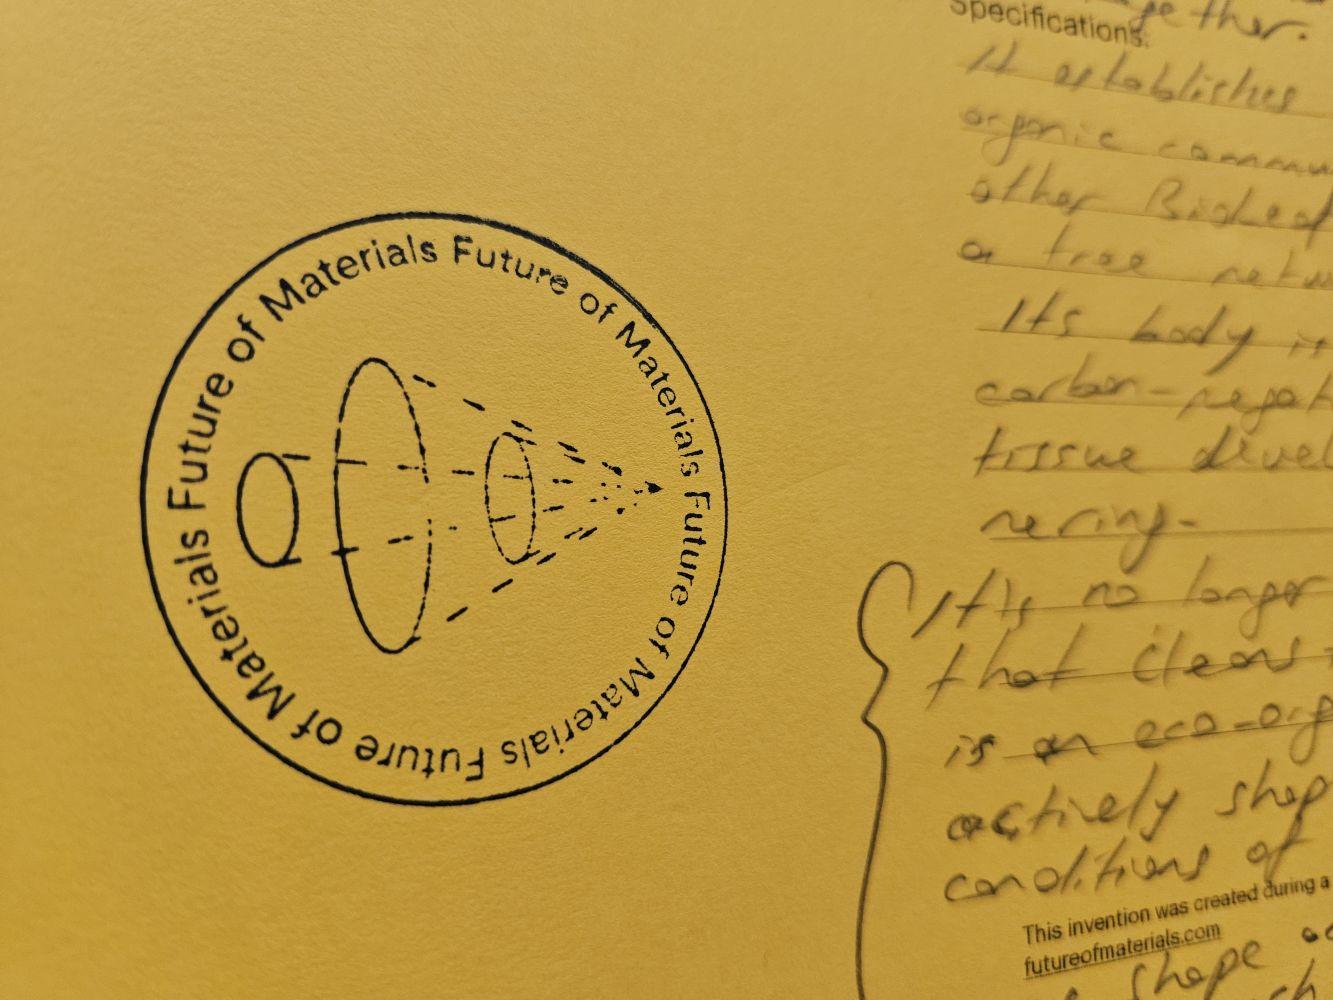 Future of Materials Future of Materials Future of Materials Future of Materials
gether.
Specifications:
It establishes
organic commu
other
a tree netw
Its body is
carbon-negat
tissue devel
nering.
It's no longer
that cleans
is an eco-org
actively shap
conditions of
This invention was created during a
futureofmaterials.com
shape